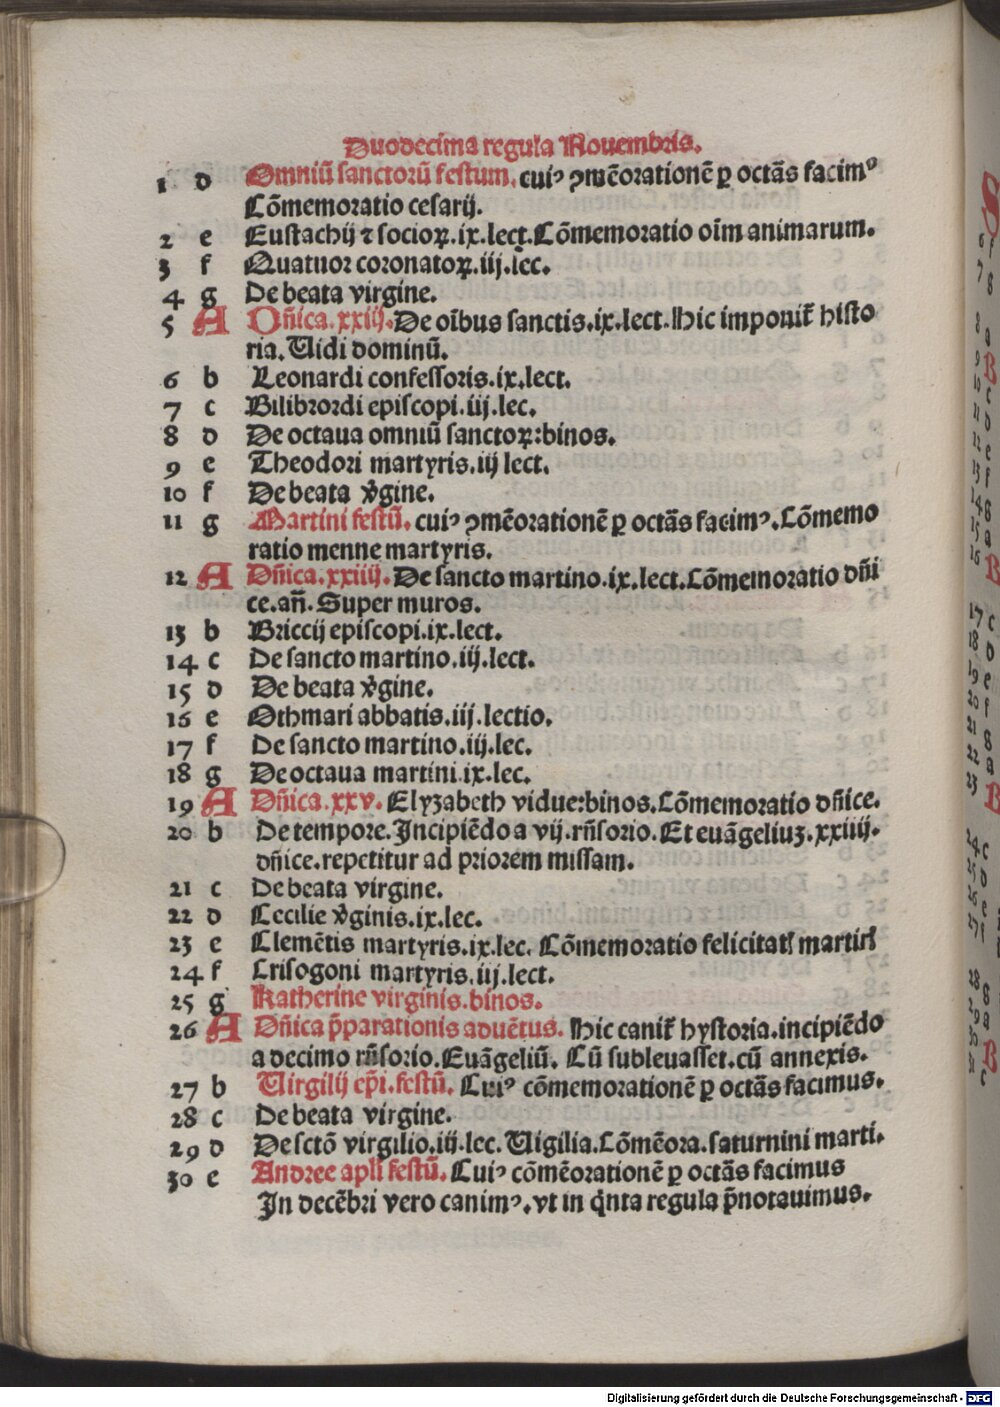 Duodecima regula Nouembris.
1 d Omniū sanctorū festum. cuiꝰ ꝯmēorationē ꝑ octās facimꝰ
Cōmemoratio cesarij.
2 e Eustachij ⁊ socioꝝ. ix. lect. Cōmemoratio oīm animarum.
3 f Quatuor coronatoꝝ. iij. lec.
4 g De beata virgine.
5 A Dn̄ica. xxiij. De oībus sanctis. ix. lect. Hic imponit᷑ histo
ria. Uidi dominū.
6 b Leonardi confessoris. ix. lect.
7 c Bilibrordi episcopi. iij. lec.
8 d De octaua omniū sanctoꝝ: binos.
9 e Theodori martyris. iij lect.
10 f De beata v̓gine.
11 g Martini festū. cuiꝰ ꝯmēorationē ꝑ octās facimꝰ. Cōmemo
ratio menne martyris.
12 A Dn̄ica. xxiiij. De sancto martino. ix. lect. Cōmemoratio dn̄i
ce. an̄. Super muros.
13 b Briccij episcopi. ix. lect.
14 c De sancto martino. iij. lect.
15 d De beata v̓gine.
16 e Othmari abbatis. iij. lectio.
17 f De sancto martino. iij. lec.
18 g De octaua martini. ix. lec.
19 A Dn̄ica. xxv. Elyzabeth vidue: binos. Cōmemoratio dn̄ice.
20 b De tempore. Incipiēdo a vij. rn̄sorio. Et euāgeliuꝫ. xxiiij.
dn̄ice. repetitur ad priorem missam.
21 c De beata virgine.
22 d Cecilie v̓ginis. ix. lec.
23 e Clemētis martyris. ix. lec. Cōmemoratio felicitatꝭ martirꝭ
24 f Crisogoni martyris. iij. lect.
25 g Katherine virginis. binos.
26 A Dn̄ica p̄parationis aduētus. Hic canit᷑ hystoria. incipiēdo
a decimo rn̄sorio. Euāgeliū. Cū subleuasset. cū annexis.
27 b Uirgilij ep̄i. festū. Cuiꝰ cōmemorationē ꝑ octās facimus.
28 c De beata virgine.
29 d De sctō virgilio. iij. lec. Uigilia. Cōmēora. saturnini marti.
30 e Andree apl̄i festū. Cuiꝰ cōmēorationē ꝑ octās facimus
In decēbri vero canimꝰ. vt in q̇nta regula p̄notauimus.
Digitalisierung gefördert durch die Deutsche Forschungsgemeinschaft - DFG